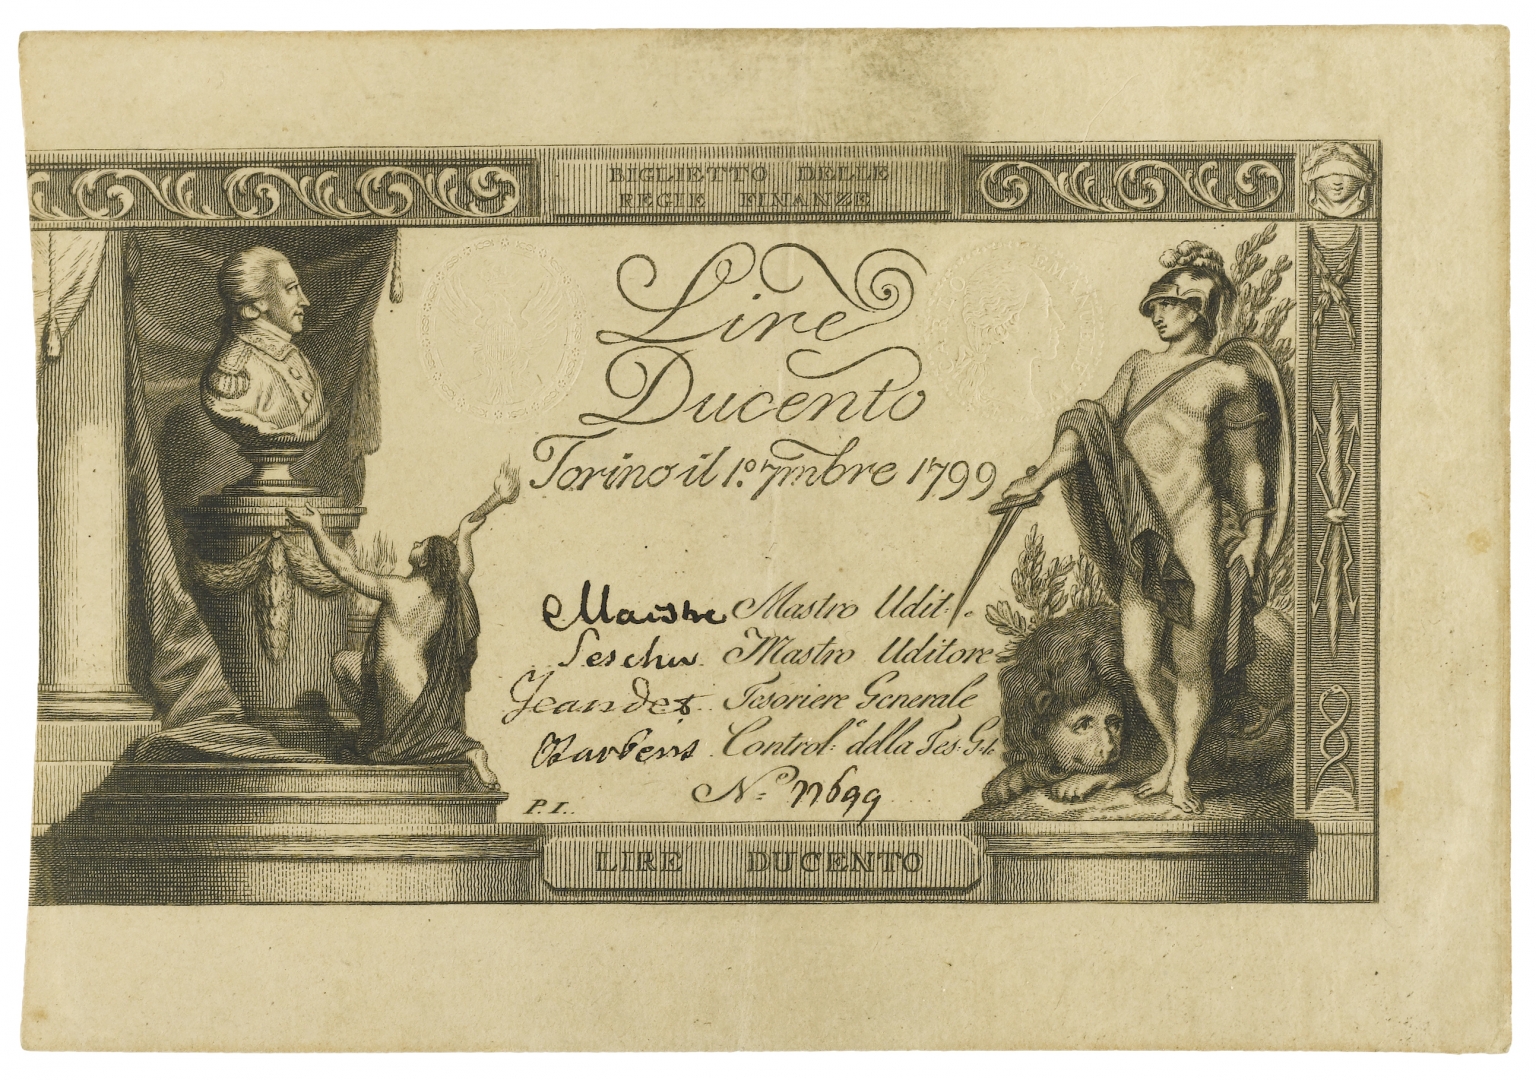 BIGLIETTO DELLE
REGIE FINANZE
Lire
Ducento
Torino il 1.º 7mbre 1799
EMANUE
Mastro Udit.e
Mastro Uditore
Jeandet Tesoriere Generale
Control.r della Tes. G.le
N.º 77699
P. I..
LIRE DUCENTO